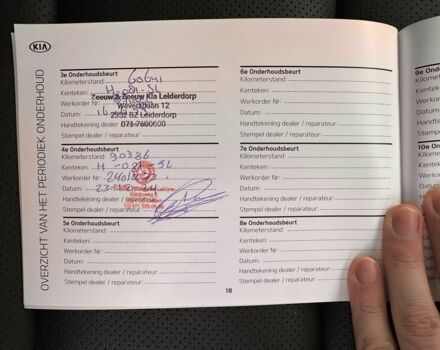 KIA
OVERZICHT VAN HET PERIODIEK ONDERHOUD
3e Onderhoudsbeurt
Kilometerstand:
Kenteken:
Zeeuw & Zeeuw Kia Leiderdorp
Werkorder Nr:
Weversbaan 12
Datum :
2352 BZ Leiderdorp
Handtekening dealer / reparateur:
071-7600600
Stempel dealer / reparateur:
4e Onderhoudsbeurt
Kilometerstand: 90386
Kenteken: H
Werkorder Nr:
Datum :
Handtekening dealer / reparateur:
Stempel dealer / reparateur:
5e Onderhoudsbeurt
Kilometerstand:
Kenteken:
Werkorder Nr:
Datum:
Handtekening dealer / reparateur:
Stempel dealer / reparateur:
6e Onderhoudsbeurt
Kilometerstand:
Kenteken:
Werkorder Nr:
Datum:
Handtekening dealer / reparateur:
Stempel dealer / reparateur:
7e Onderhoudsbeurt
Kilometerstand:
Kenteken:
Werkorder Nr:
Datum:
Handtekening dealer / reparateur:
Stempel dealer / reparateur:
8e Onderhoudsbeurt
Kilometerstand:
Kenteken:
Werkorder Nr:
Datum:
Handtekening dealer / reparateur:
Stempel dealer / reparateur:
18
9e
Kilo
Ken
Wer
Dat
Hand
Stem
10e
Kilo